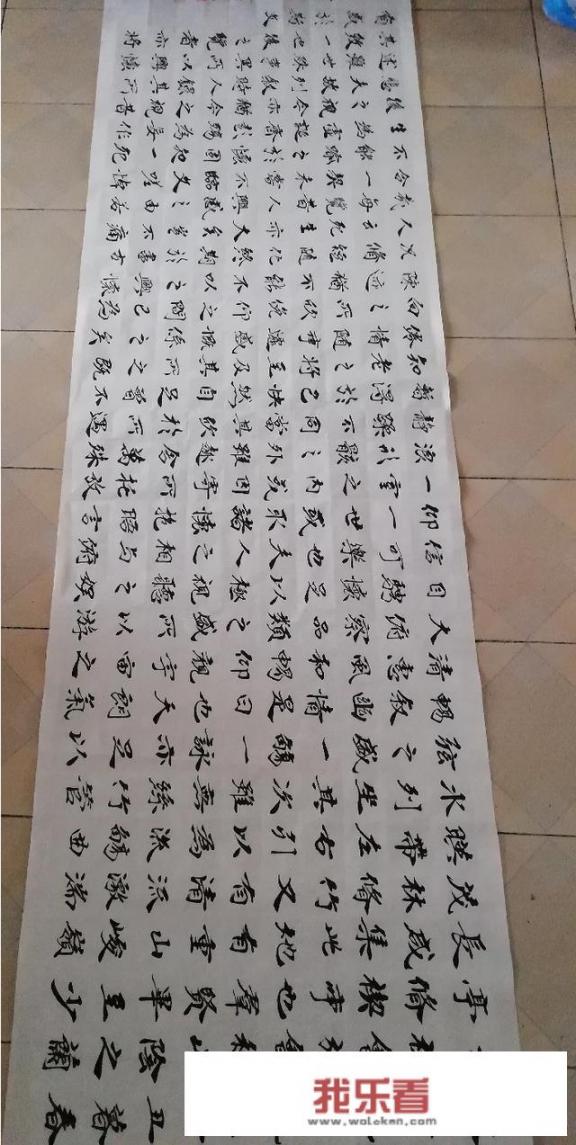 丑暮春
山陰之蘭
亭修禊事也群賢畢至少
長咸集此地有崇山峻嶺
茂林修竹又有清流激湍
映帶左右引以為流觴曲
水列坐其次雖無絲竹管
絃之盛一觴一詠亦足以
暢敘幽情是日也天朗氣
清惠風和暢仰觀宇宙之
大俯察品類之盛所以游
目騁懷足以極視聽之娛
信可樂也夫人之相與俯
仰一世或取諸懷抱悟言
一室之內或因寄所托放
浪形骸之外雖趣舍萬殊
靜躁不同當其欣於所遇
暫得於己快然自足不
知老之將至及其所之既
係情隨事遷感慨係之矣
向之所欣俛仰之間已為
陳迹猶不能不以之興懷
况脩短隨化終期於盡古
人云死生亦大矣豈不痛
於每覽昔人興感之由若
合一契未嘗不臨文嗟悼
不能喻之於懷固知一死
生為虛誕齊彭殤為妄作
後之視今亦由今之視昔
悲夫故列敘時人錄其所
述雖世殊事異所以興懷
其致一也後之覽者亦將
我乐看
www.woleken.com